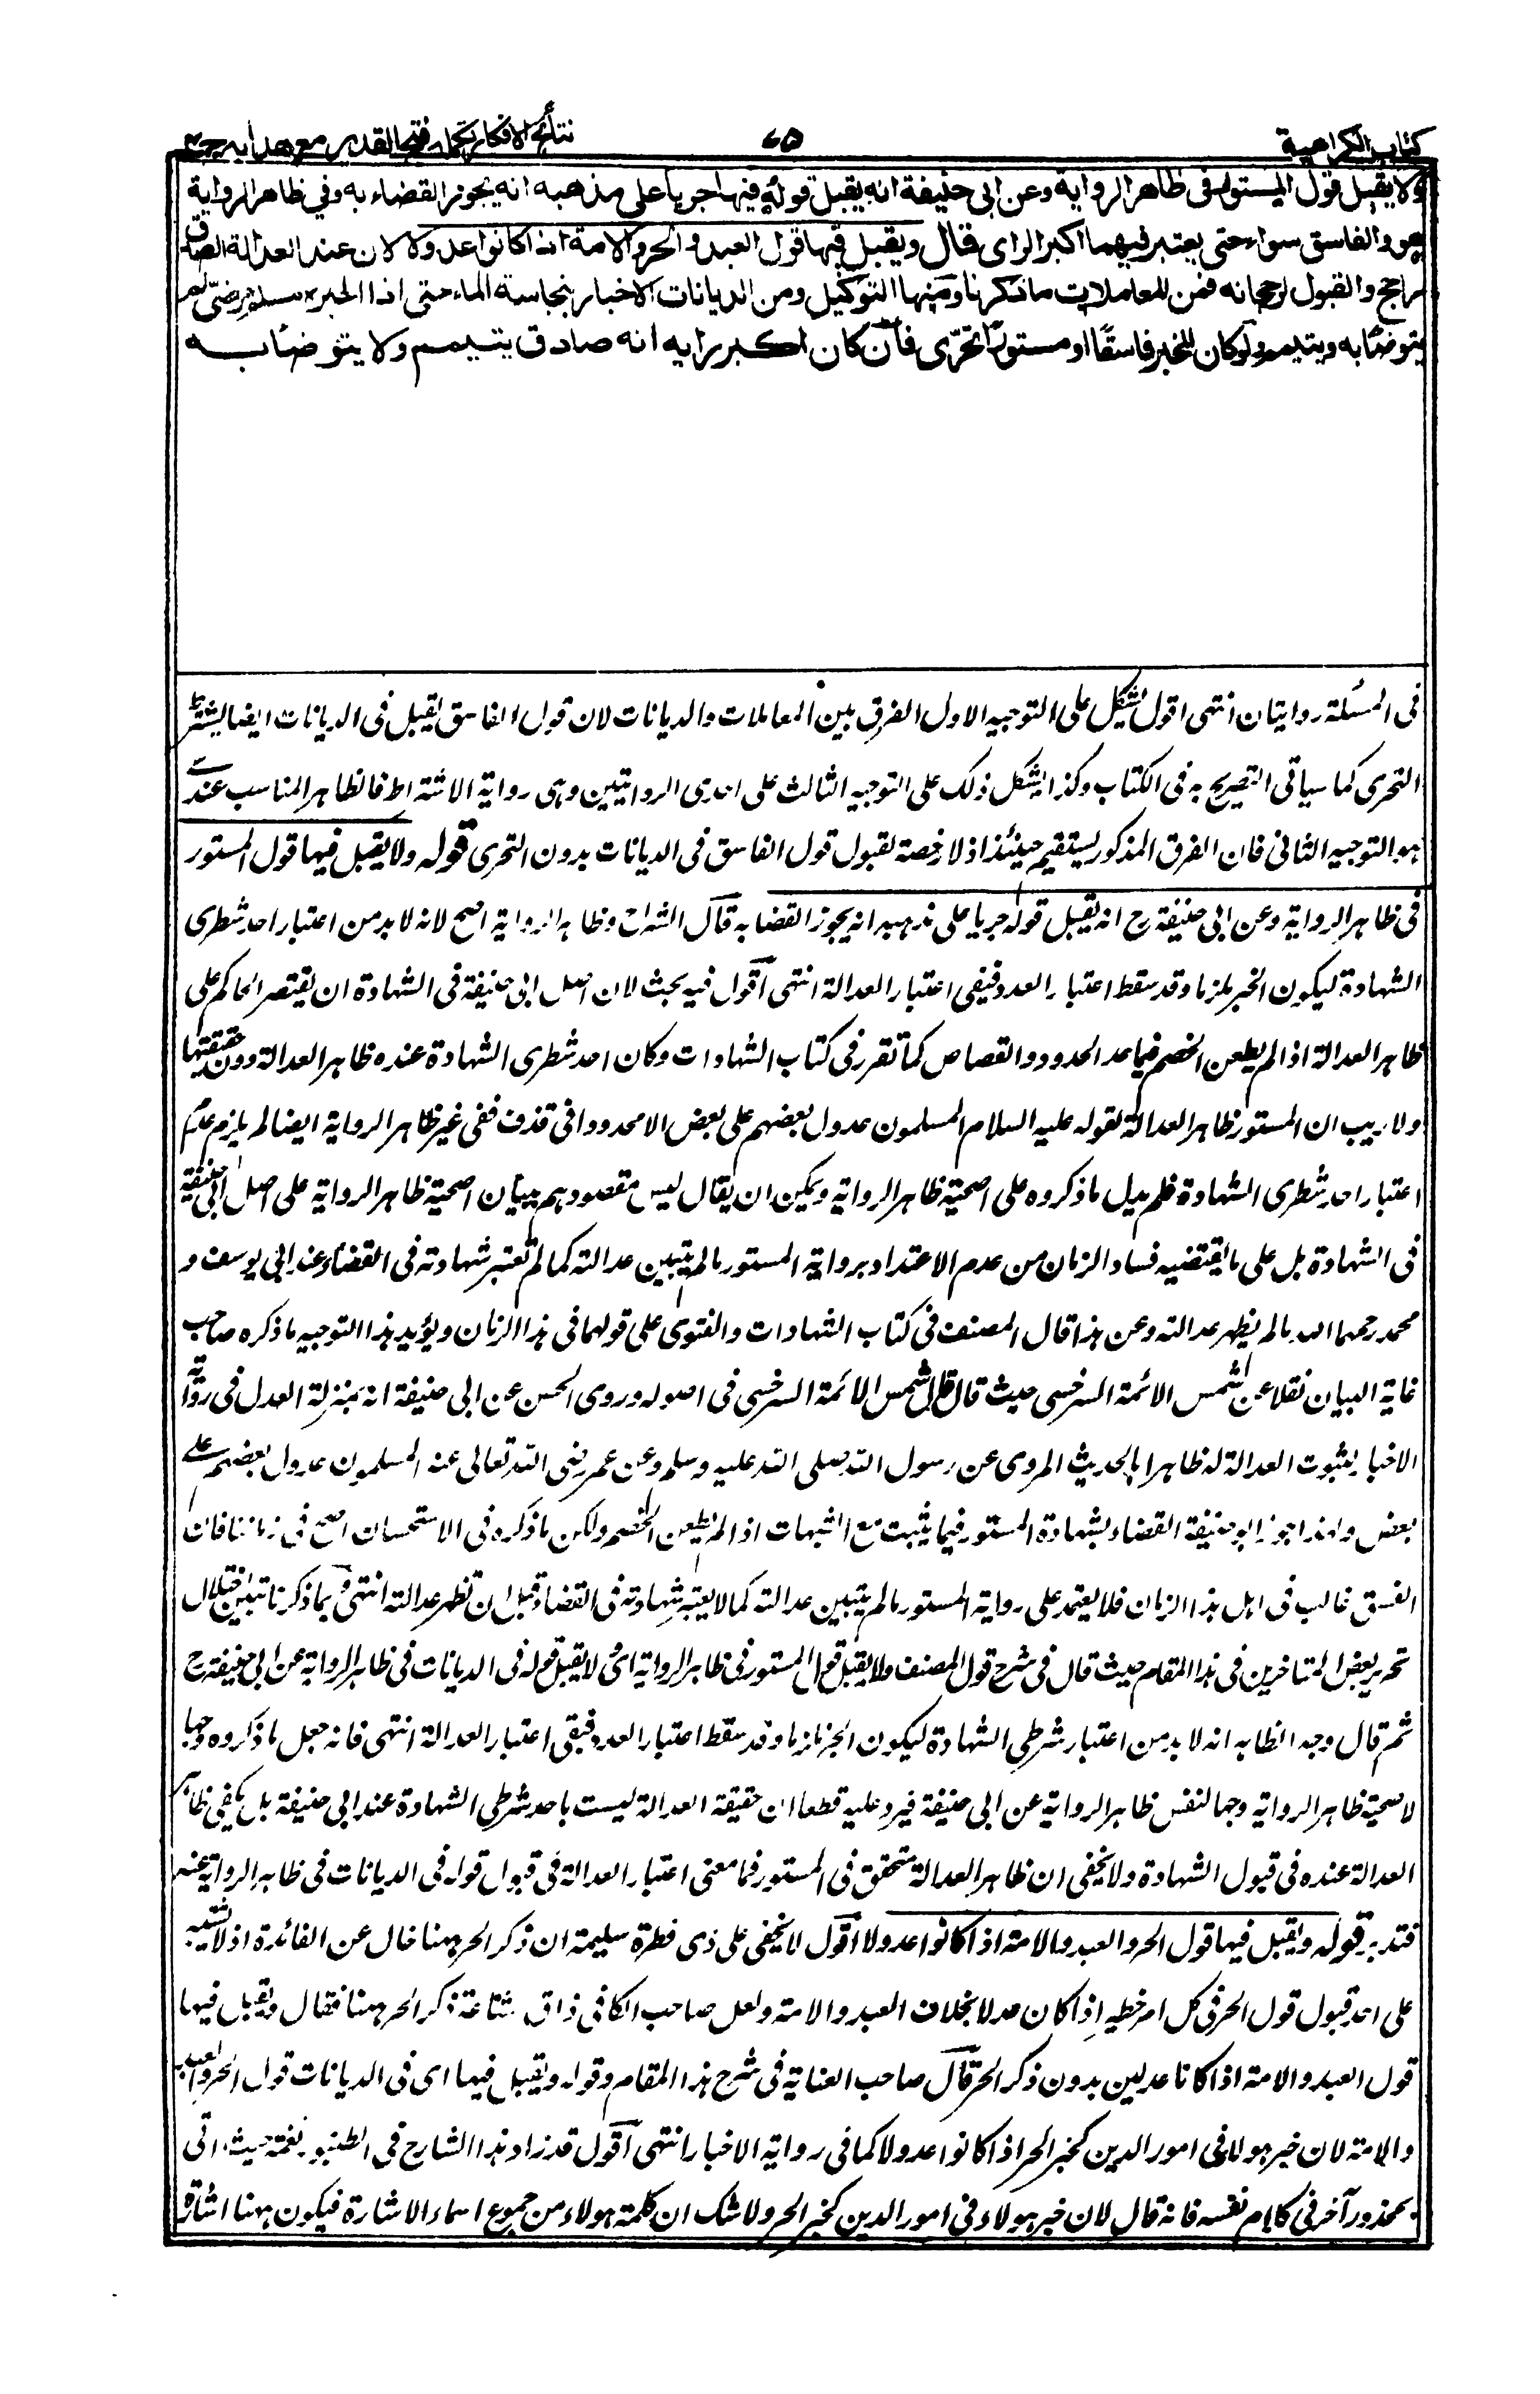 كتاب الكراهية ٦٥ نتائج الافكار تكملة فتح القدير مع هدايه ج ٤
ولا يقبل قول المستور فى ظاهر الرواية وعن ابى حنيفة انه يقبل قوله فيها جريا على مذهبه انه يجوز القضاء به وفي ظاهر الرواية
هو والفاسق سواء حتى يعتبر فيهما اكبر الراى قال ويقبل فيها قول العبد والحر والامة اذا كانوا عدولا لان عند العدالة الصدق
راجح والقبول لرجحانه فمن المعاملات ما ذكرنا ومنها التوكيل ومن الديانات الاخبار بنجاسة الماء حتى اذا اخبره مسلم مرضى لم
يتوضأ به ويتيمم ولو كان المخبر فاسقا او مستورا تحرى فان كان اكبر رايه انه صادق يتيمم ولا يتوضأ به
فى المسئلة روايتان انتهى اقول يشكل على التوجيه الاول الفرق بين المعاملات والديانات لان قول الفاسق يقبل فى الديانات ايضا بشرط
التحرى كما سياتى التصريح به فى الكتاب وكذا يشكل ذلك على التوجيه الثالث على احدى الروايتين وهى رواية الاشتراط فالظاهر المناسب عندى
هو التوجيه الثانى فان الفرق المذكور يستقيم حينئذ اذ لا رخصة لقبول قول الفاسق فى الديانات بدون التحرى قوله ولا يقبل فيها قول المستور
فى ظاهر الرواية وعن ابى حنيفة رح انه يقبل قوله جريا على مذهبه انه يجوز القضا به قال الشراح وظاهر الرواية اصح لانه لا بد من اعتبار احد شطرى
الشهادة ليكون الخبر ملزما وقد سقط اعتبار العدد فبقى اعتبار العدالة انتهى اقول فيه بحث لان اصل ابى حنيفة فى الشهادة ان يقتصر الحاكم على
ظاهر العدالة اذا لم يطعن الخصم فيما عدا الحدود والقصاص كما تقرر فى كتاب الشهادات وكان احد شطرى الشهادة عنده ظاهر العدالة دون حقيقتها
ولا ريب ان المستور ظاهر العدالة لقوله عليه السلام المسلمون عدول بعضهم على بعض الا محدودا فى قذف ففى غير ظاهر الرواية ايضا لم يلزم عدم
اعتبار احد شطرى الشهادة فلم يدل ما ذكروه على اصحية ظاهر الرواية ويمكن ان يقال ليس مقصودهم بيان اصحية ظاهر الرواية على اصل ابى حنيفة
فى الشهادة بل على ما يقتضيه فساد الزمان من عدم الاعتداد برواية المستور ما لم يتبين عدالته كما لم تعتبر شهادته فى القضاء عند ابى يوسف و
محمد رحمهما الله ما لم يظهر عدالته وعن هذا قال المصنف فى كتاب الشهادات والفتوى على قولهما فى هذا الزمان ويؤيد هذا التوجيه ما ذكره صاحب
غاية البيان نقلا عن شمس الائمة السرخسى حيث قال قال شمس الائمة السرخسى فى اصوله وروى الحسن عن ابى حنيفة انه بمنزلة العدل فى رواية
الاخبار لثبوت العدالة له ظاهرا بالحديث المروى عن رسول الله صلى الله عليه وسلم وعن عمر رضى الله تعالى عنه المسلمون عدول بعضهم على
بعض ولهذا جوز ابو حنيفة القضاء بشهادة المستور فيما يثبت مع الشبهات اذا لم يطعن الخصم ولكن ما ذكره فى الاستحسان اصح فى زماننا فان
الفسق غالب فى اهل هذا الزمان فلا يعتمد على رواية المستور ما لم يتبين عدالته كما لا يعتبر شهادته فى القضاء قبل ان تظهر عدالته انتهى وبما ذكرنا تبين اختلال
تحرير بعض المتاخرين فى هذا المقام حيث قال فى شرح قول المصنف ولا يقبل قول المستور فى ظاهر الرواية اى لا يقبل قوله فى الديانات فى ظاهر الرواية عن ابى حنيفة رح
ثم قال وجه الظاهر انه لا بد من اعتبار شرطى الشهادة ليكون الخبر ملزما وقد سقط اعتبار العدد فبقى اعتبار العدالة انتهى فانه جعل ما ذكروه وجها
لاصحية ظاهر الرواية وجها لنفس ظاهر الرواية عن ابى حنيفة فيرد عليه قطعا ان حقيقة العدالة ليست باحد شرطى الشهادة عند ابى حنيفة بل يكفى ظاهر
العدالة عنده فى قبول الشهادة ولا يخفى ان ظاهر العدالة متحقق فى المستور فما معنى اعتبار العدالة فى قبول قوله فى الديانات فى ظاهر الرواية عنه
فتدبر قوله ويقبل فيها قول الحر والعبد والامة اذا كانوا عدولا اقول لا يخفى على ذى فطرة سليمة ان ذكر الحر ههنا خال عن الفائدة اذ لا يشتبه
على احد قبول قول الحر فى كل امر خطير اذا كان عدلا بخلاف العبد والامة ولعل صاحب الكافى ذاق بشاعة ذكر الحر ههنا فقال ويقبل فيها
قول العبد والامة اذا كانا عدلين بدون ذكر الحر قال صاحب العناية فى شرح هذا المقام وقوله ويقبل فيها اى فى الديانات قول الحر والعبد
والامة لان خبر هولاء فى امور الدين كخبر الحر اذا كانوا عدولا كما فى رواية الاخبار انتهى اقول قد زاد هذا الشارح فى الطنبور نغمة حيث اتى
بمحذور آخر فى كلام نفسه فانه قال لان خبر هولاء فى امور الدين كخبر الحر ولا شك ان كلمة هولاء من جموع اسماء الاشارة فيكون ههنا اشارة